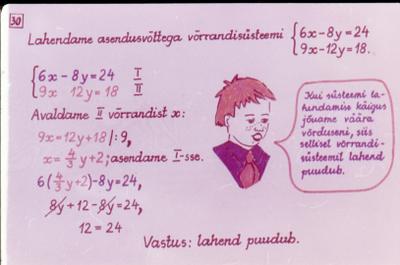 30
Lahendame asendusvõttega võrrandisüsteemi {6x-8y=24
9x-12y=18.
{6x-8y=24 I
9x 12y=18 II
Avaldame II võrrandist x:
9x=12y+18/:9,
x=4/3y+2; asendame I-sse.
6(4/3y+2)-8y=24,
8y+12-8y=24,
12=24
Kui süsteemi la-
hendamise käigus
jõuame väära
võrduseni, siis
sellisel võrrandi-
süsteemil lahend
puudub.
Vastus: lahend puudub.